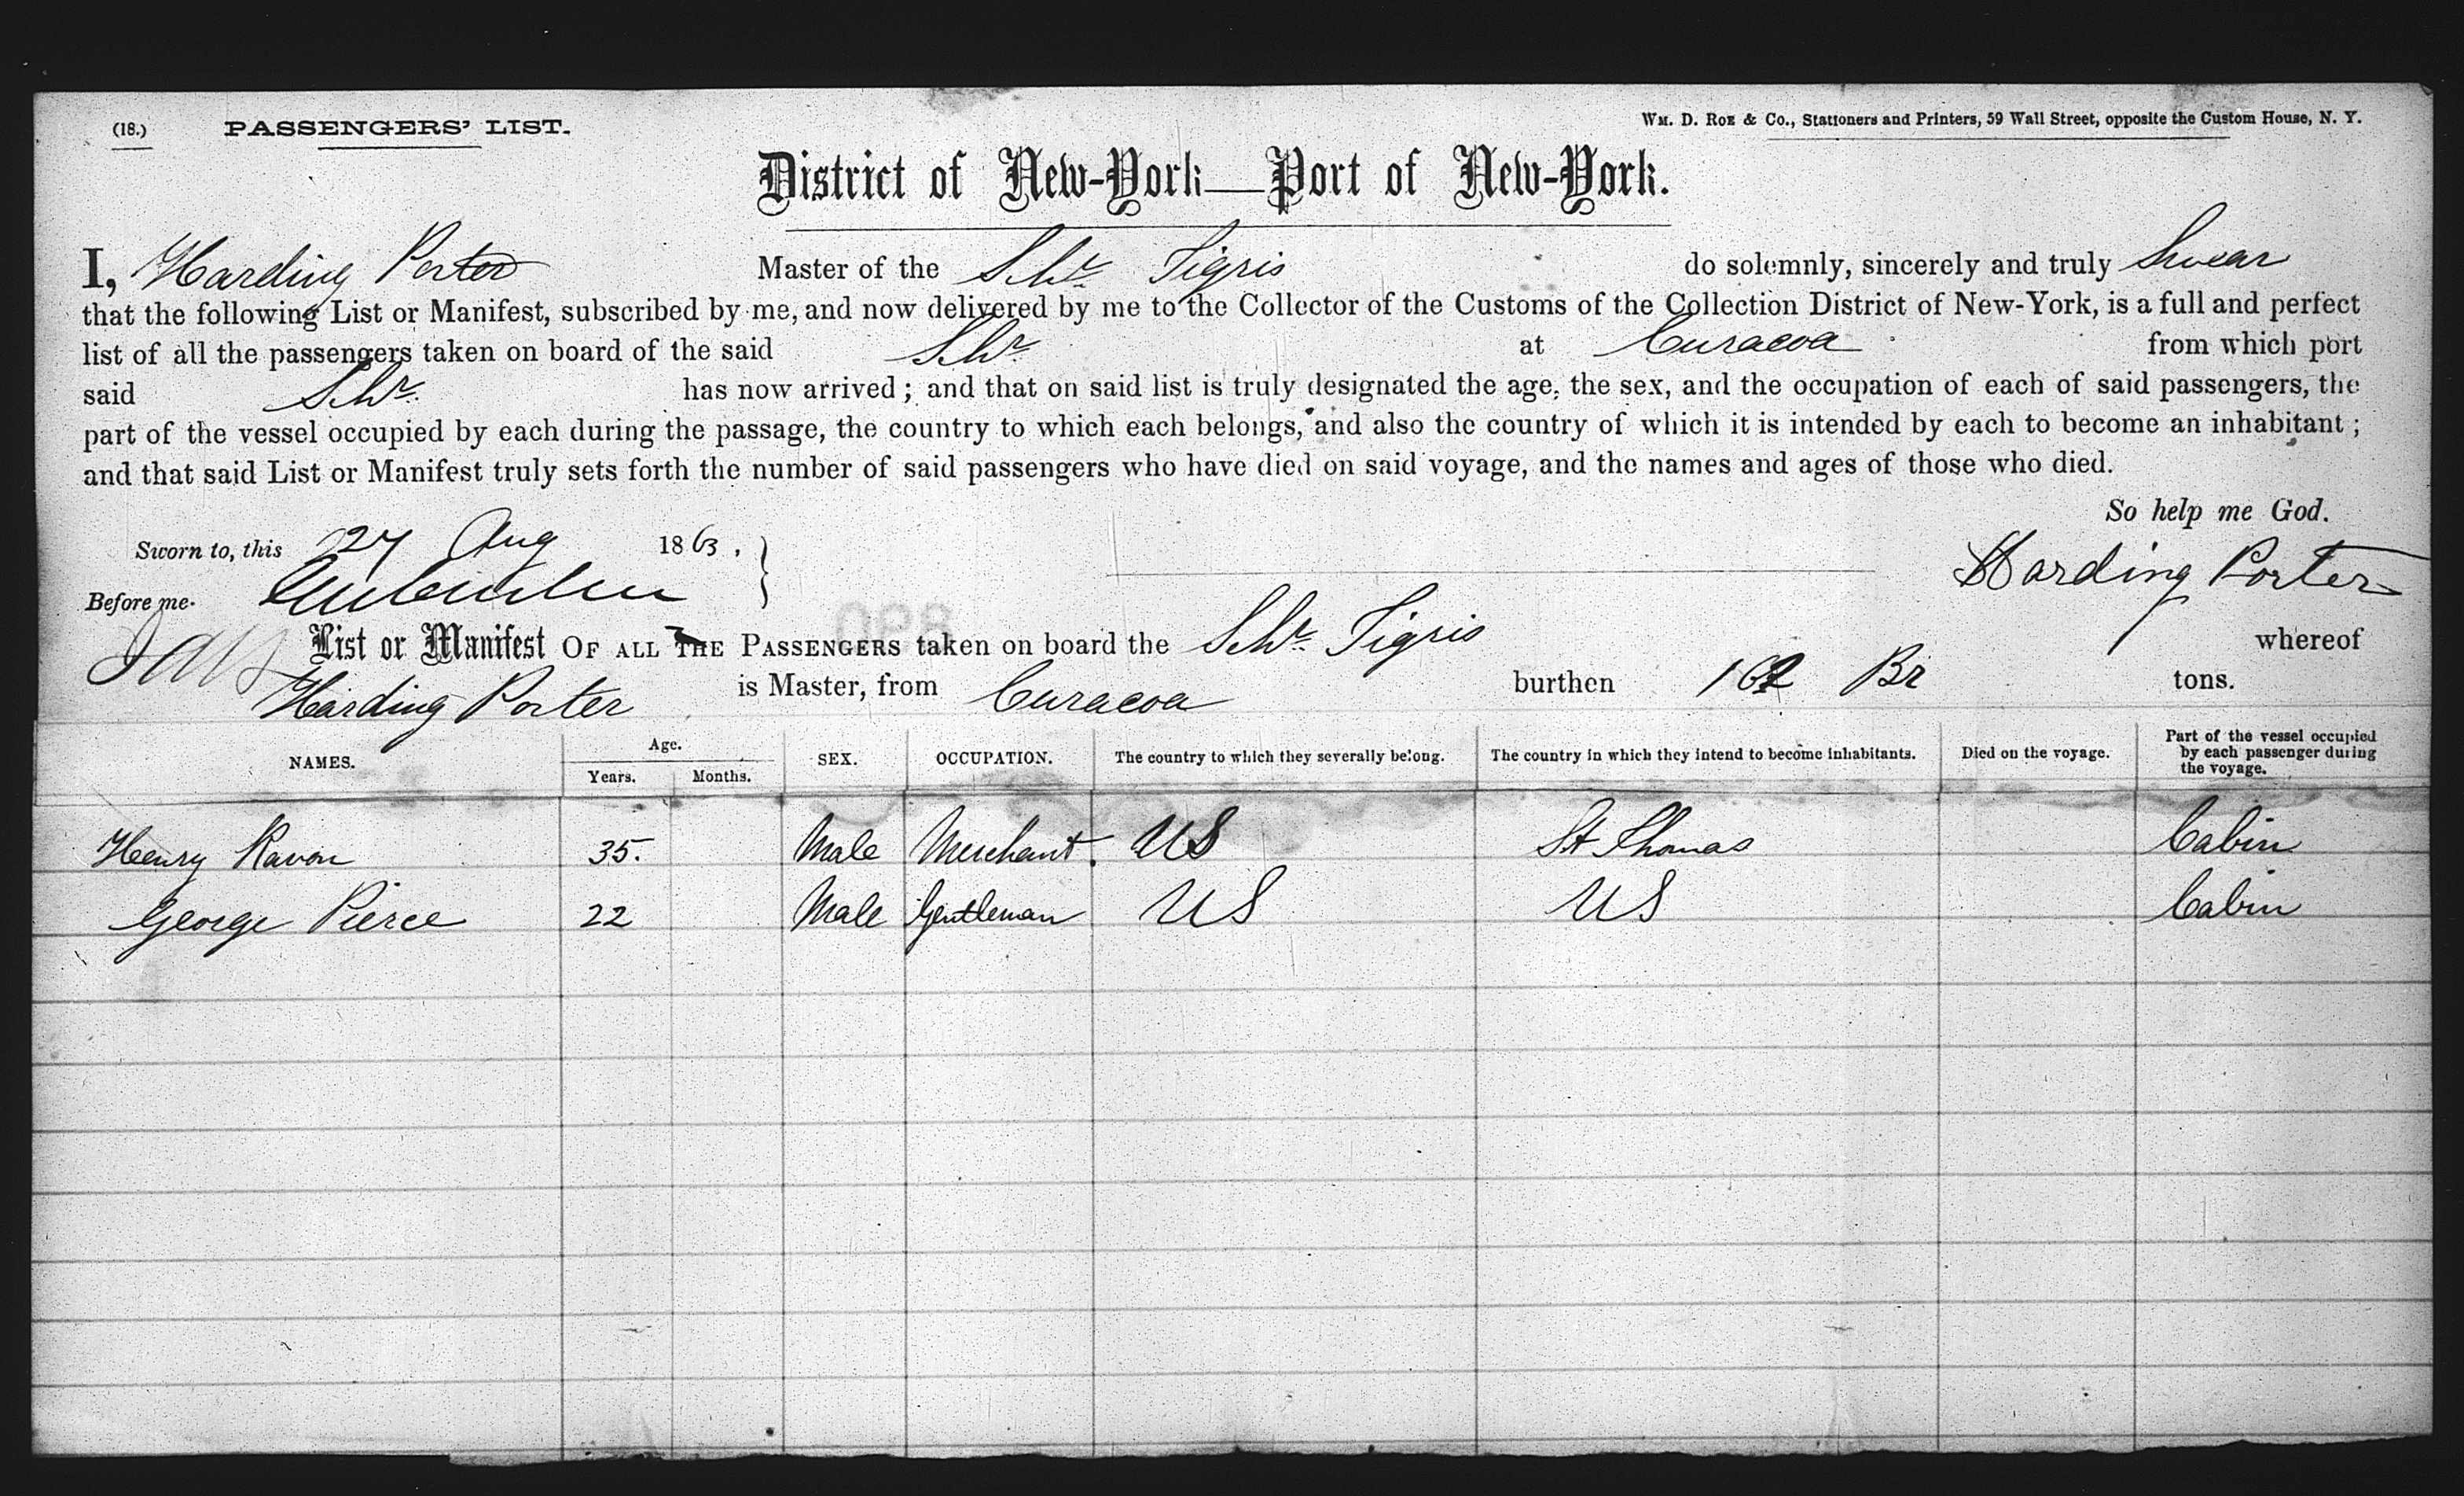 (18.) PASSENGERS' LIST. Wm. D. Roe & Co., Stationers and Printers, 59 Wall Street, opposite the Custom House, N. Y.
District of New-York—Port of New-York.
I, Harding Porter Master of the Schr Tigris do solemnly, sincerely and truly Swear
that the following List or Manifest, subscribed by me, and now delivered by me to the Collector of the Customs of the Collection District of New-York, is a full and perfect
list of all the passengers taken on board of the said Schr at Curacoa from which port
said Schr has now arrived; and that on said list is truly designated the age, the sex, and the occupation of each of said passengers, the
part of the vessel occupied by each during the passage, the country to which each belongs, and also the country of which it is intended by each to become an inhabitant;
and that said List or Manifest truly sets forth the number of said passengers who have died on said voyage, and the names and ages of those who died.
So help me God.
Sworn to, this 27 Aug 1863,
Harding Porter
Before me.
List or Manifest OF ALL THE PASSENGERS taken on board the Schr Tigris whereof
Harding Porter is Master, from Curacoa burthen Br tons.
NAMES. Age. Years. Months. SEX. OCCUPATION. The country to which they severally belong. The country in which they intend to become inhabitants. Died on the voyage. Part of the vessel occupied by each passenger during the voyage.
Henry Ravon 35. Male Merchant. US St Thomas Cabin
George Pierce 22 Male Gentleman US US Cabin